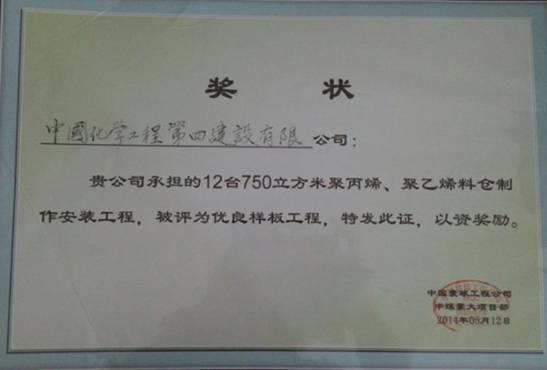 奖 状
中國化学工程第四建設有限公司：
贵公司承担的12台750立方米聚丙烯、聚乙烯料仓制
作安装工程，被评为优良样板工程，特发此证，以资奖励。
中国寰球工程公司
中煤蒙大项目部
2014年05月12日